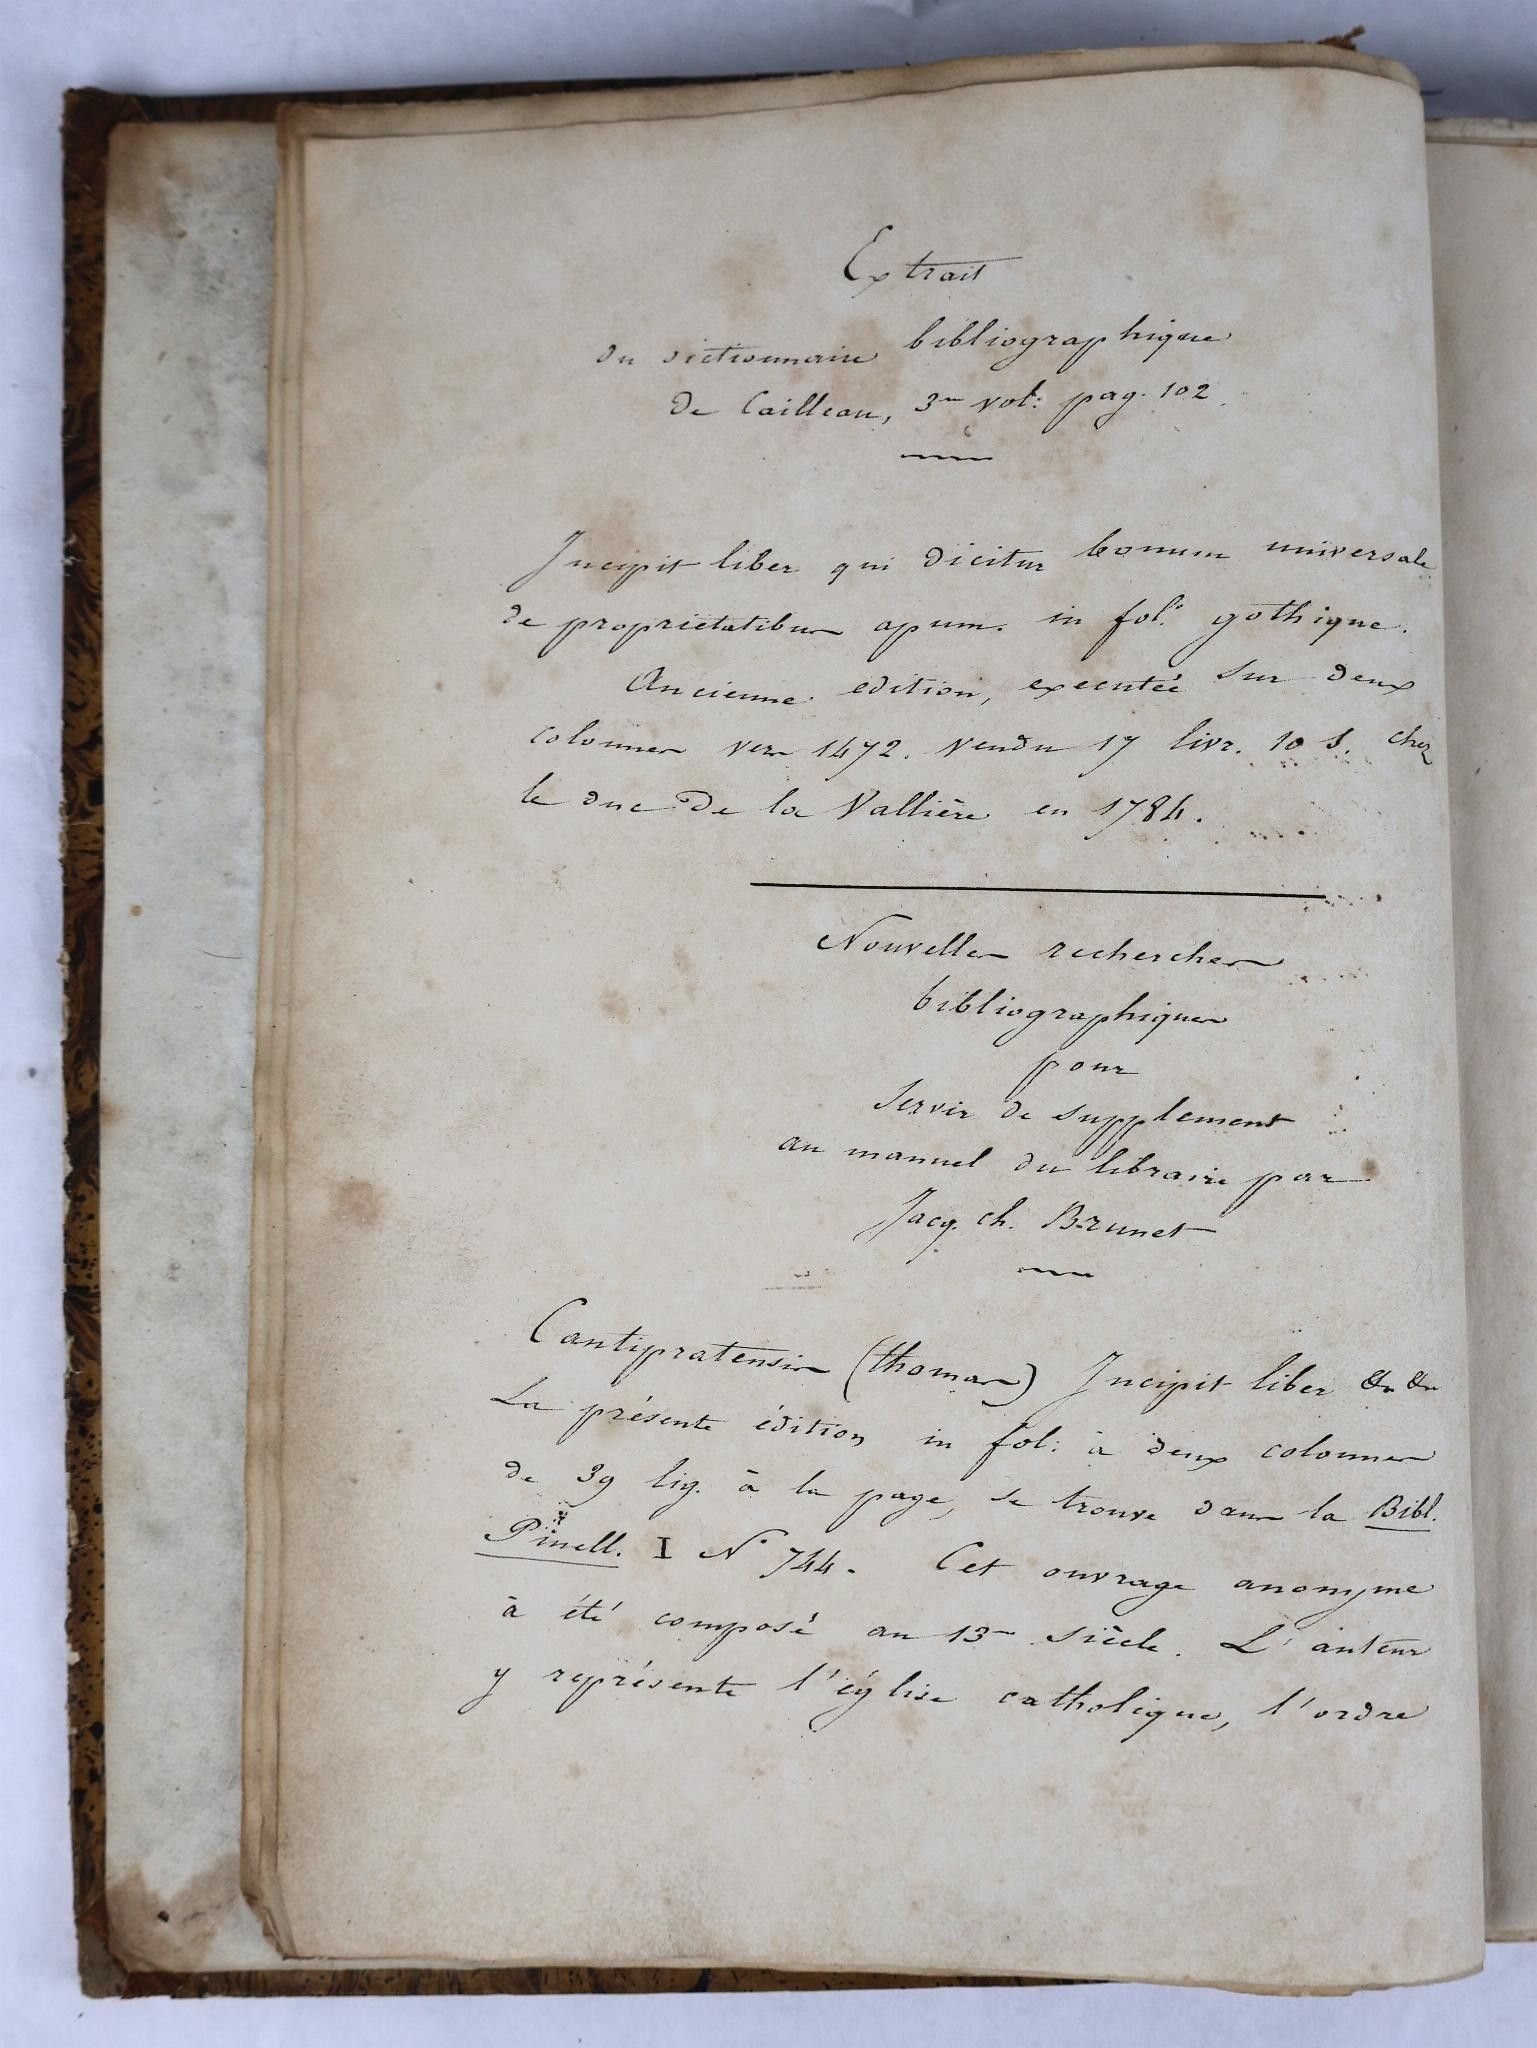 Extrait
du dictionnaire bibliographique
de Cailleau, 3me vol: pag. 102
Incipit liber qui dicitur bonum universale
de proprietatibus apum. in fol.º gothique.
Ancienne edition, executée sur deux
colonnes vers 1472. vendu 17 livr. 10 s. chez
le duc de la Vallière en 1784.
Nouvelles recherches
bibliographiques
pour
servir de supplement
au manuel du libraire par
Jacq. ch. Brunet
Cantipratensis (thomas) Incipit liber &c &c
La présente édition in fol: à deux colonnes
de 39 lig. à la page, se trouve dans la Bibl.
Pinell. I Nº 744. Cet ouvrage anonyme
à été composé au 13me siècle. L'auteur
y représente l'église catholique, l'ordre